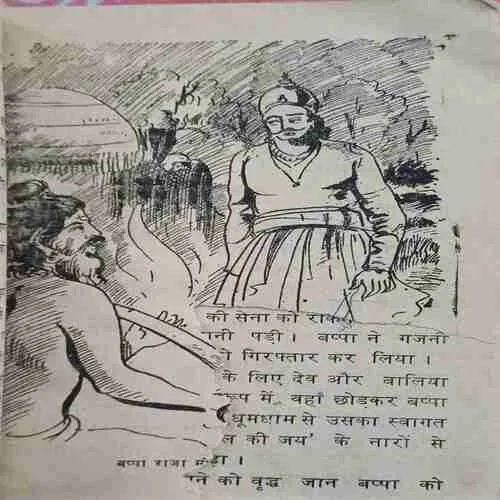 की सेना को
पड़ी। बप्पा ने गजनी
गिरफ्तार कर लिया।
के लिए देव और बालिया
में, वहाँ छोडकर बप्पा
धूमधाम से उसका स्वागत
की जय' के नारों से
बप्पा राजा
को वृद्ध जान बप्पा को